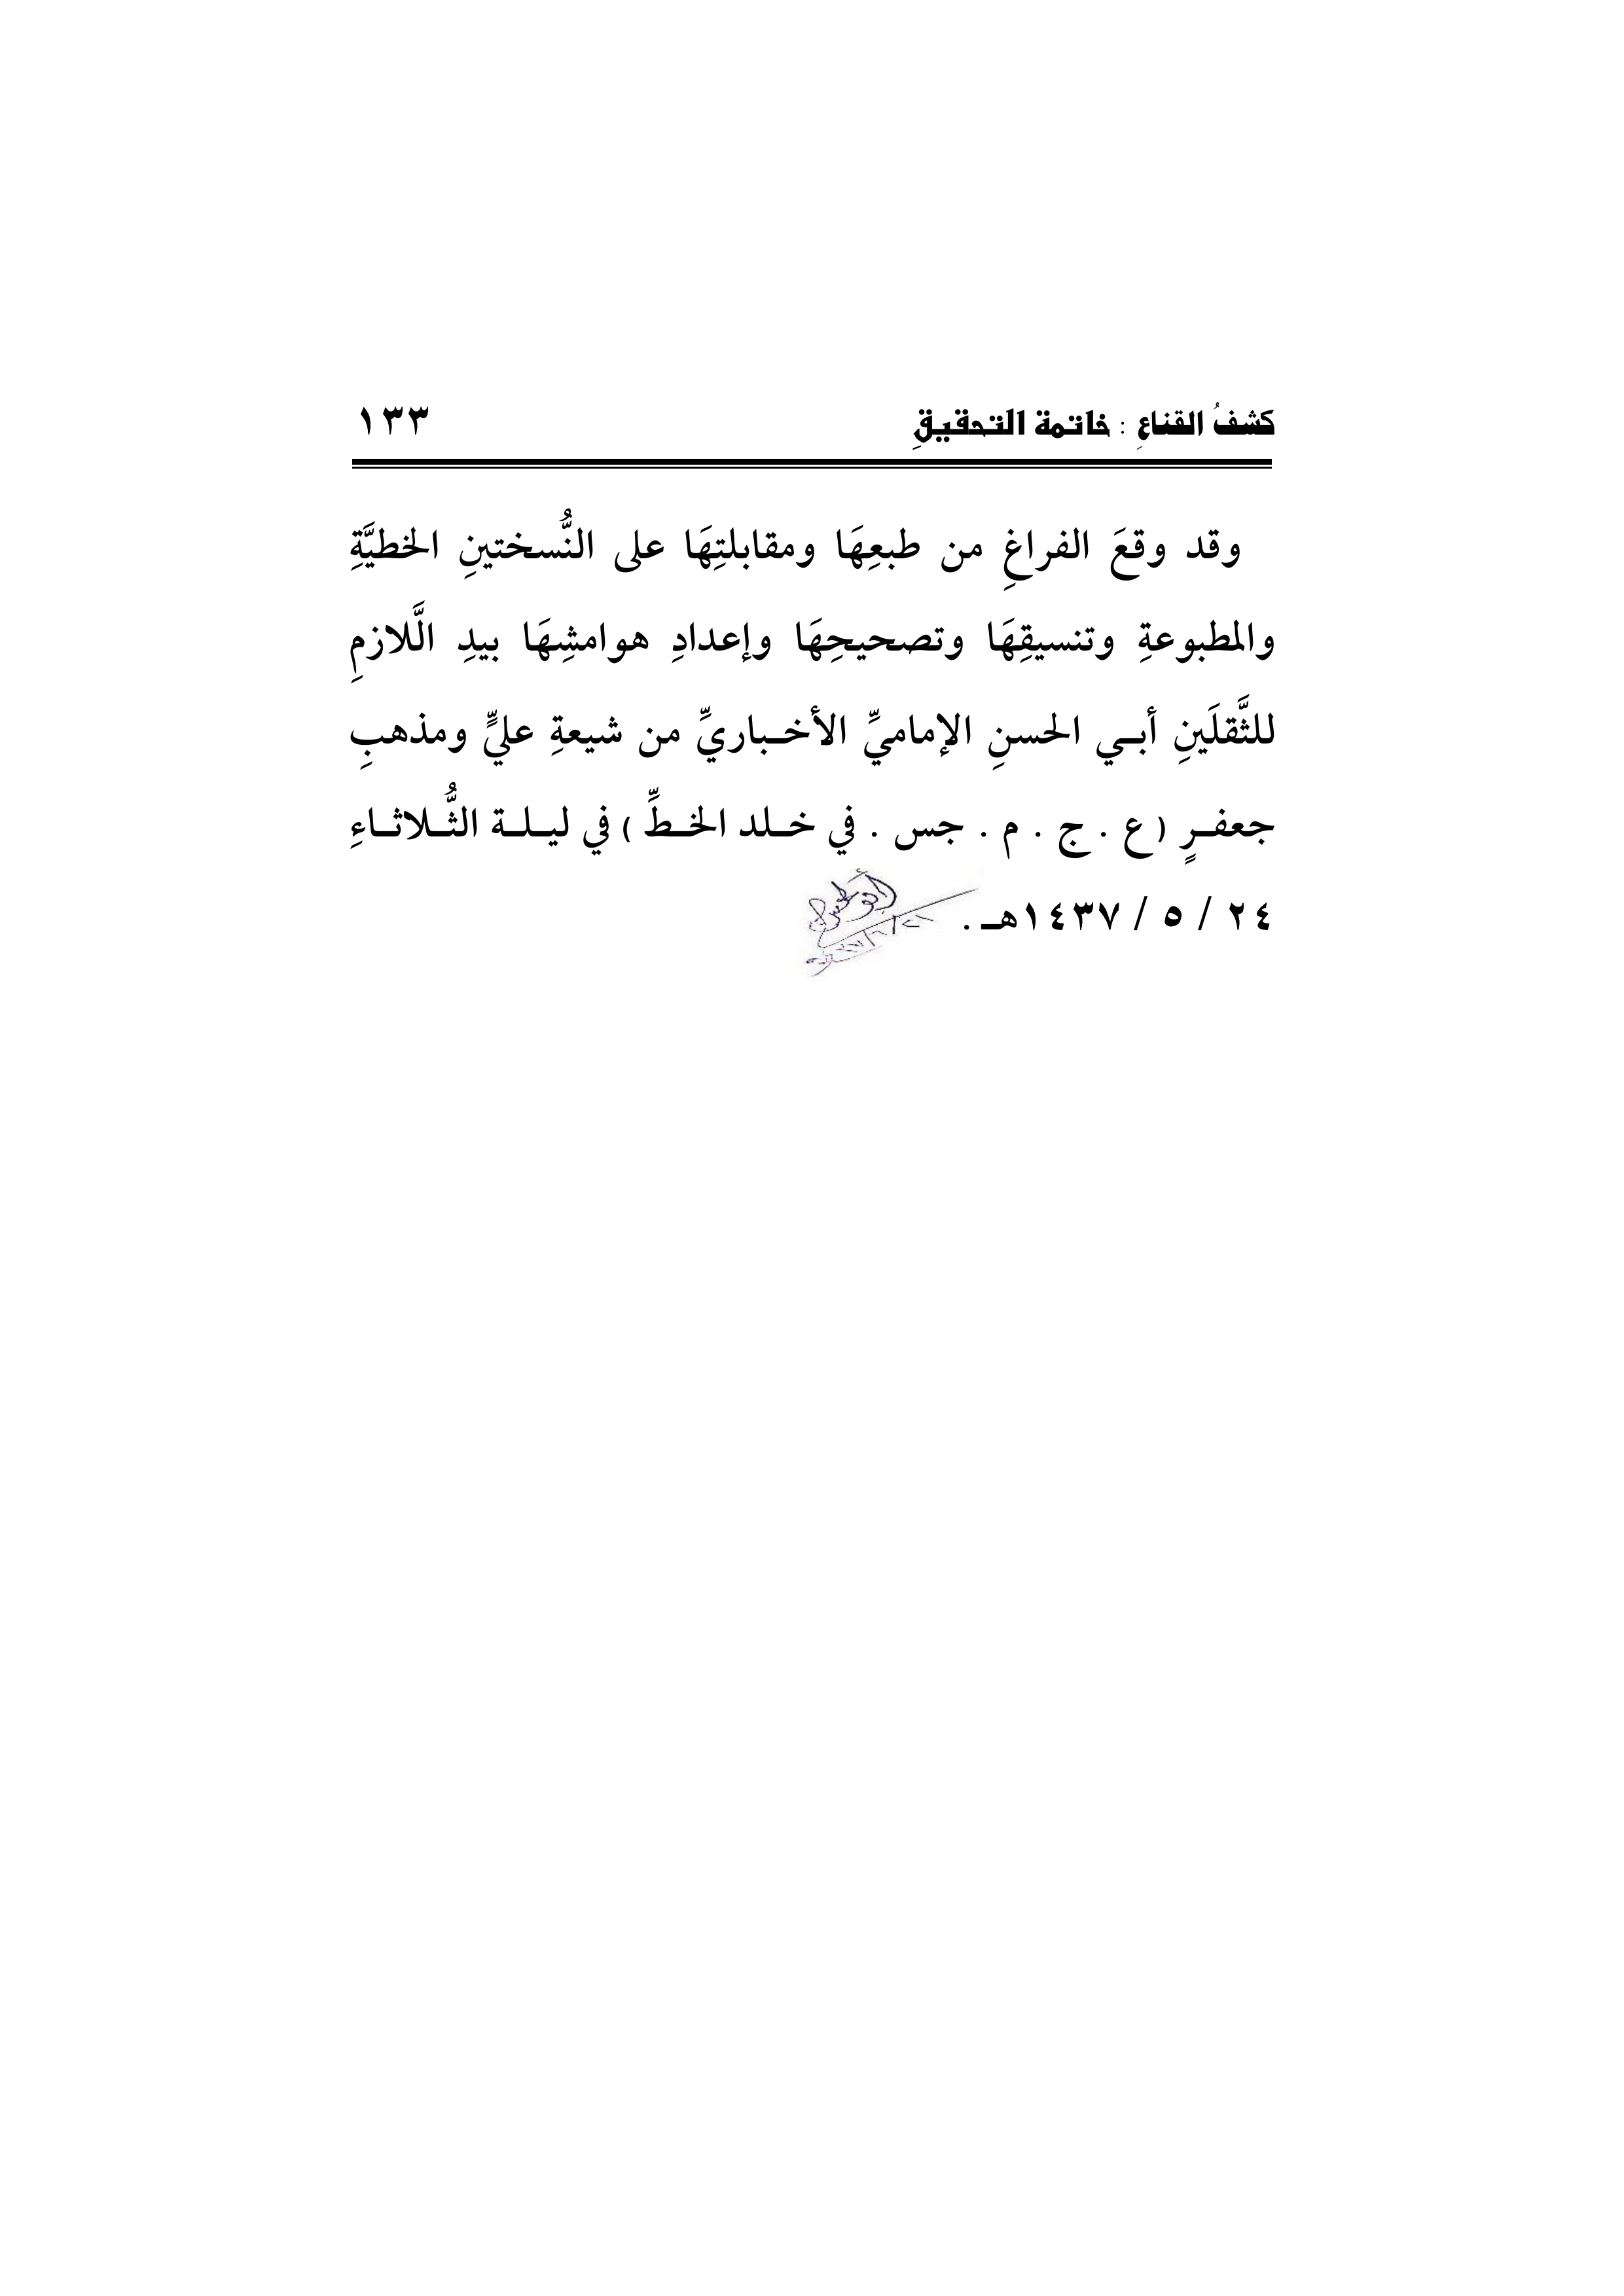 كشفُ القناعِ : خاتمة التحقيقِ ١٣٣
وقد وقعَ الفراغِ من طبعِهَا ومقابلتِهَا على النُّسختينِ الخطيَّةِ
والمطبوعةِ وتنسيقِهَا وتصحيحِهَا وإعدادِ هوامشِهَا بيدِ الَّلازمِ
للثَّقلَينِ أبـي الحسنِ الإماميِّ الأخـباريِّ من شيعةِ عليٍّ ومذهبِ
جعفـرٍ ( ع . ج . م . جس . في خـلد الخـطِّ ) في ليـلـة الثُّـلاثـاءِ
٢٤ / ٥ / ١٤٣٧هـ .